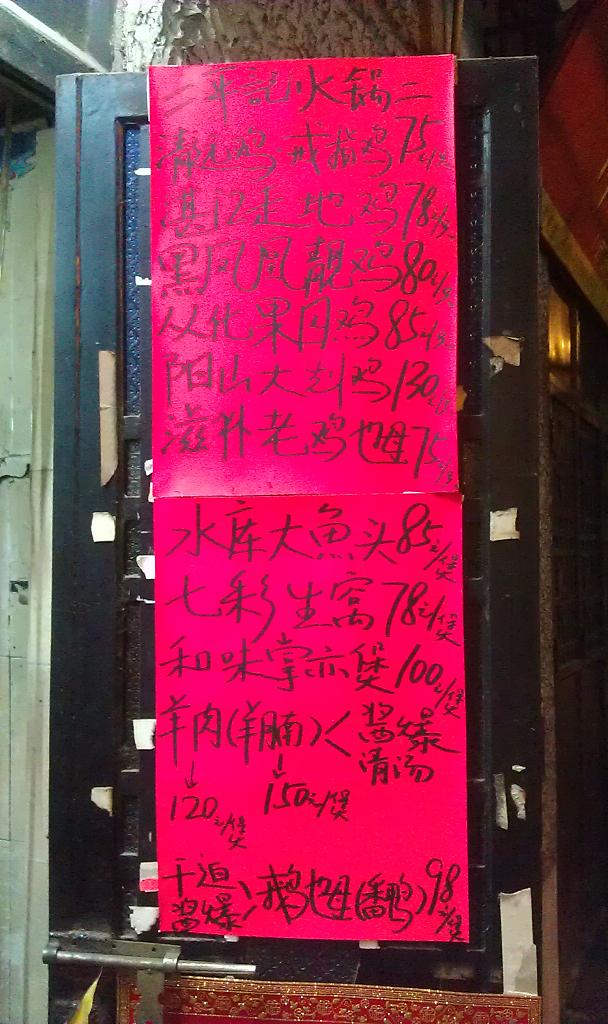 二平記火锅二
清远鸡·戒指鸡75元/只
湛江走地鸡78元/只
黑凤凰靓鸡80元/只
从化果园鸡85元/只
阳山大刣鸡130元/只
滋补老鸡乸75元/只
水库大魚头85元/煲
七彩生窝78元/煲
和味掌亦煲100元/煲
羊肉(羊腩)<酱爆 清汤
120元/煲 150元/煲
干迫 酱爆 鹅乸(番鸭)98元/煲